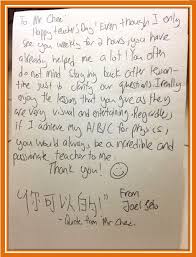 To Mr Chee
Happy teacher's Day! Even though I only
see you weekly for 2 hours, you have
already helped me a lot! You often
do not mind staying back after lesson
just to clarify our questions. I really
enjoy the lesson that you give as they
are very visual and entertaining. Regardless
if I achieve my A/B/C for physics,
you would always be an incredible and
passionate teacher to me!
Thank you!
你可以的!
From
Joel
- Quote from Mr Chee